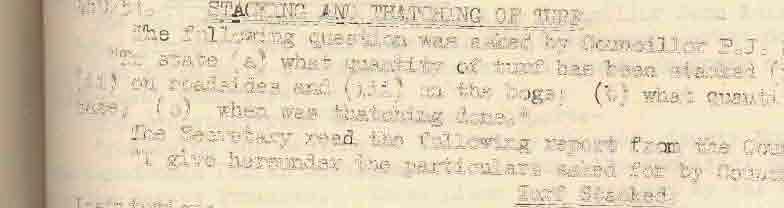 STACKING AND THATCHING OF TURF.
The following question was asked by Councillor P.J.
"To state (a) what quantity of turf has been stacked
(ii) on roadsides and (iii) on the bogs; (b) what quanti
(c) when was thatching done."
The Secretary read the following report from the Coun
"I give hereunder the particulars asked for by Counc
Turf Stacked.